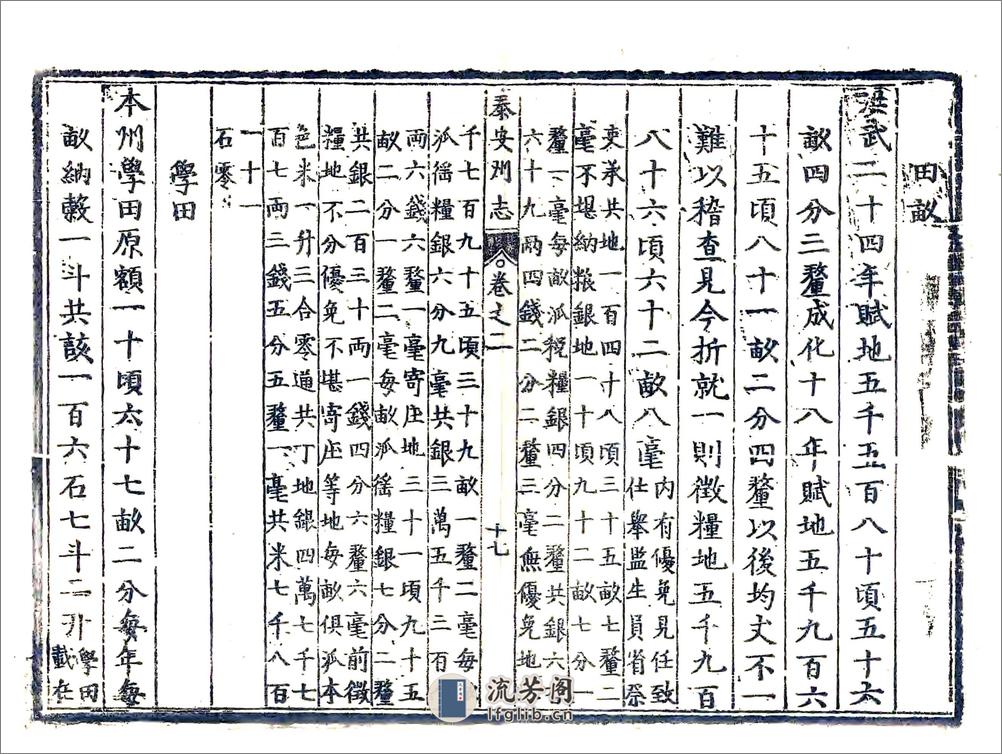 田畝
洪武二十四年賦地五千五百八十頃五十六
畝四分三釐成化十八年賦地五千九百六
十五頃八十一畝二分四釐以後均丈不一
難以稽查見今折就一則徵糧地五千九百
八十六頃六十二畝八毫內有優免見任致
仕舉監生員省祭
吏承共地一百四十八頃三十五畝七釐二
毫不堪納粮銀地一十頃九十二畝七分一
釐一毫每畝派稅糧銀四分二釐共銀六
六十九兩四錢二分二釐三毫無優免地
泰安州志
卷之二
十七
千七百九十五頃三十九畝一釐二毫每
派徭糧銀六分九毫共銀三萬五千二百
兩六錢六釐一毫寄庄地三十一頃九十五
畝二分一釐二毫每畝派徭糧銀七分二釐
共銀二百三十兩一錢四分六釐六毫前徵
糧地不分優免不堪寄庄等地每畝俱派本
色米一升三合零通共丁地銀四萬七千七
百七兩三錢五分五釐一毫共米七千八百
一十一
石零
學田
本州學田原額一十頃六十七畝二分每年每
畝納穀一斗共該一百六石七斗二升學田
載在
流芳阁
lfglib.cn